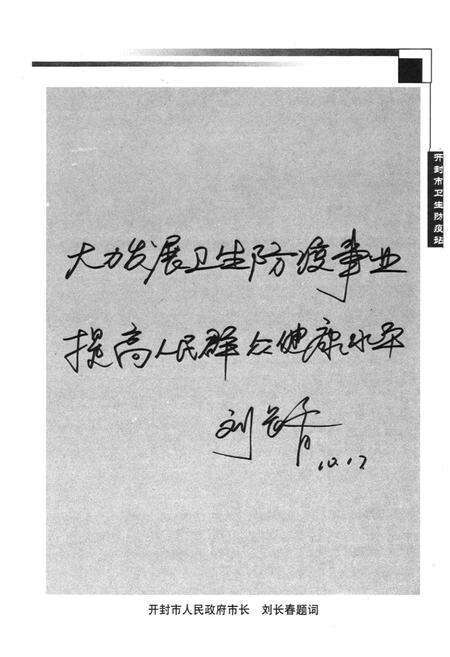 开封市卫生防疫站
大力发展卫生防疫事业
提高人民群众健康水平
刘长春
10.17
开封市人民政府市长　刘长春题词